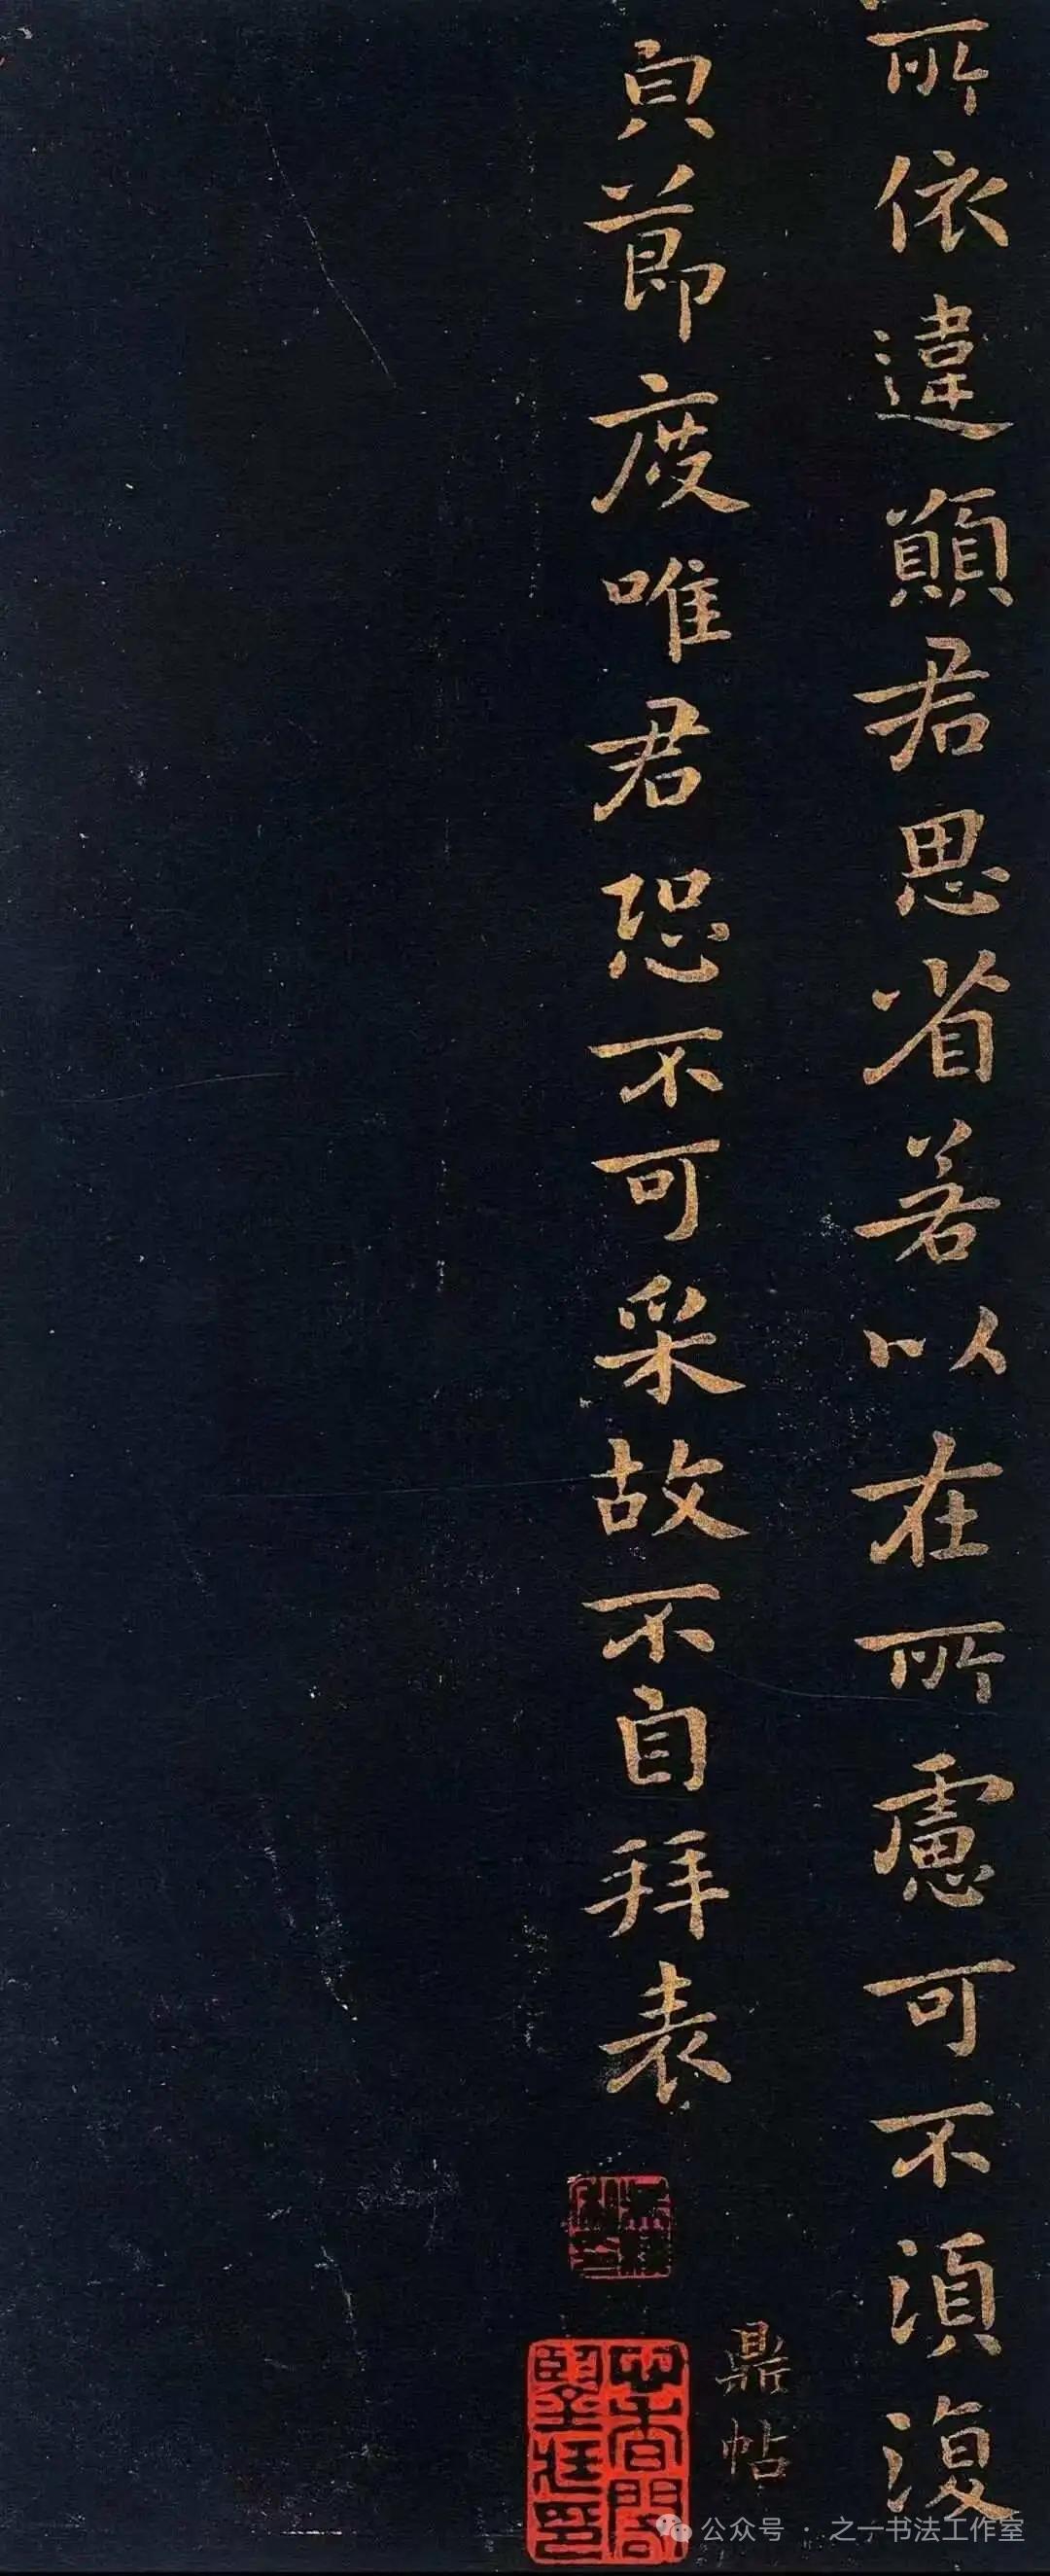 所依違願君思省若以在所慮可不須復
皃節度唯君恐不可采故不自拜表
鼎帖
公众号 · 之一书法工作室